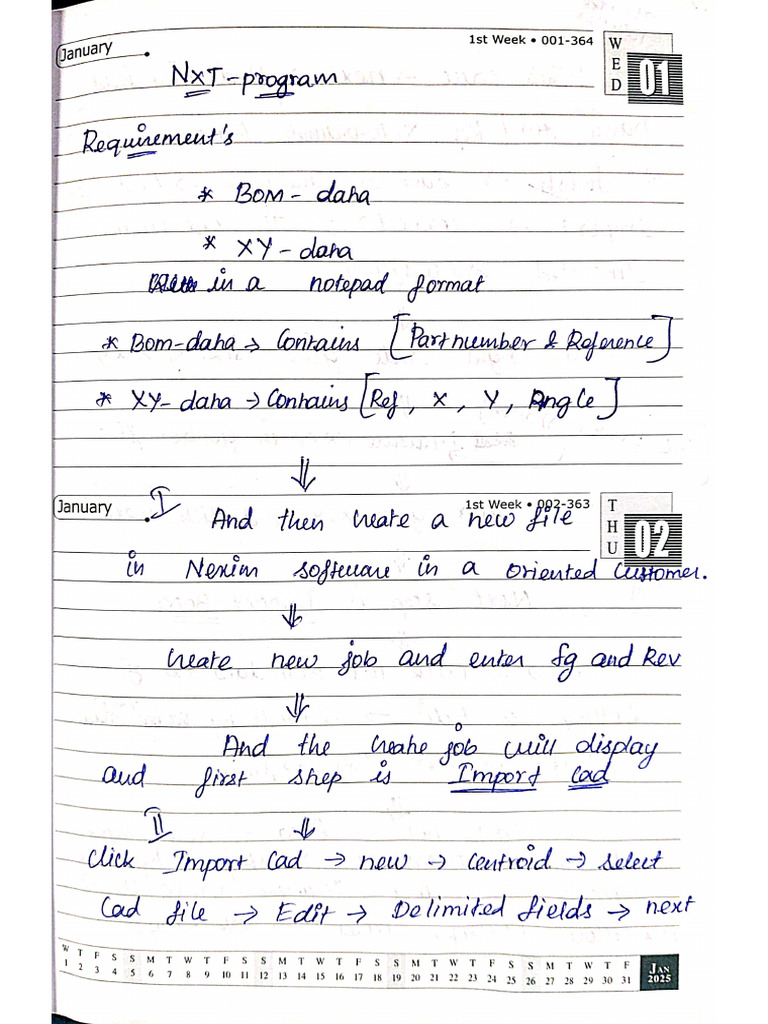 January 1st Week • 001-364 WED 01
NXT-program
Requirement's
* BOM - data
* XY - data
in a notepad format
* Bom-data → Contains [Partnumber & Reference]
* XY- data → Contains [Ref, X, Y, Angle]
⇓
January 1st Week • 002-363 THU 02
I And then create a new file
in Nexim software in a oriented customer.
⇓
Create new job and enter fg and Rev
⇓
And the create job will display
and first step is Import Cad
II ⇓
Click Import Cad → new → Centroid → select
Cad file → Edit → Delimited fields → next
W T F S S M T W T F S S M T W T F S S M T W T F S S M T W T F
1 2 3 4 5 6 7 8 9 10 11 12 13 14 15 16 17 18 19 20 21 22 23 24 25 26 27 28 29 30 31
JAN 2025